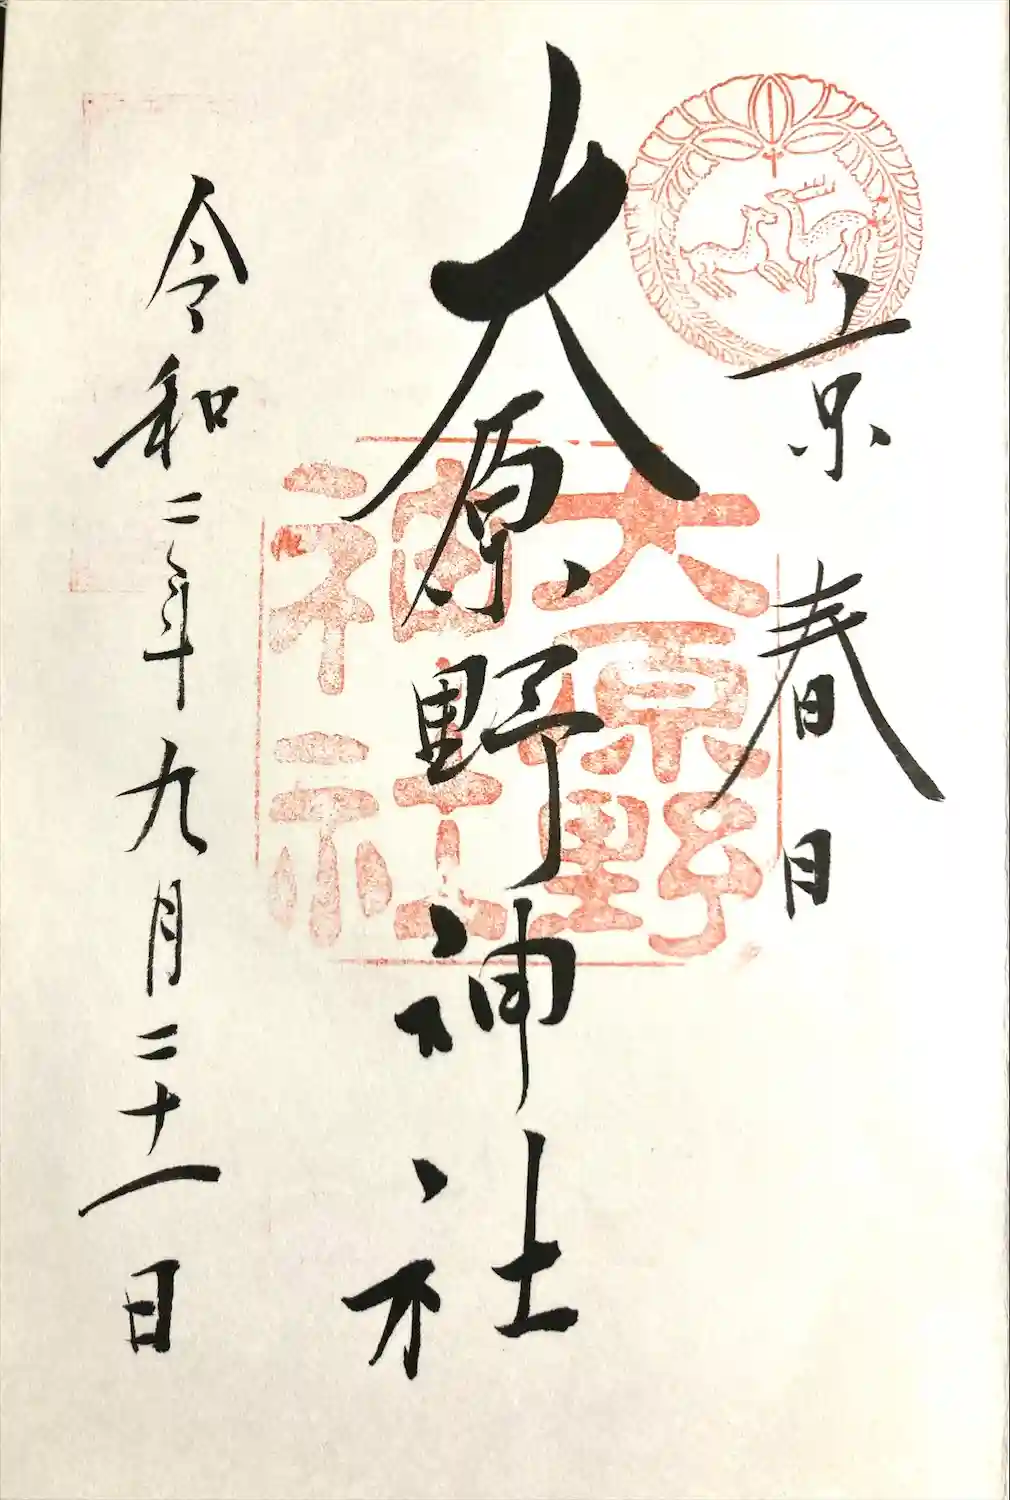 京春日
大原野神社
大原野
神社
令和二年九月二十一日